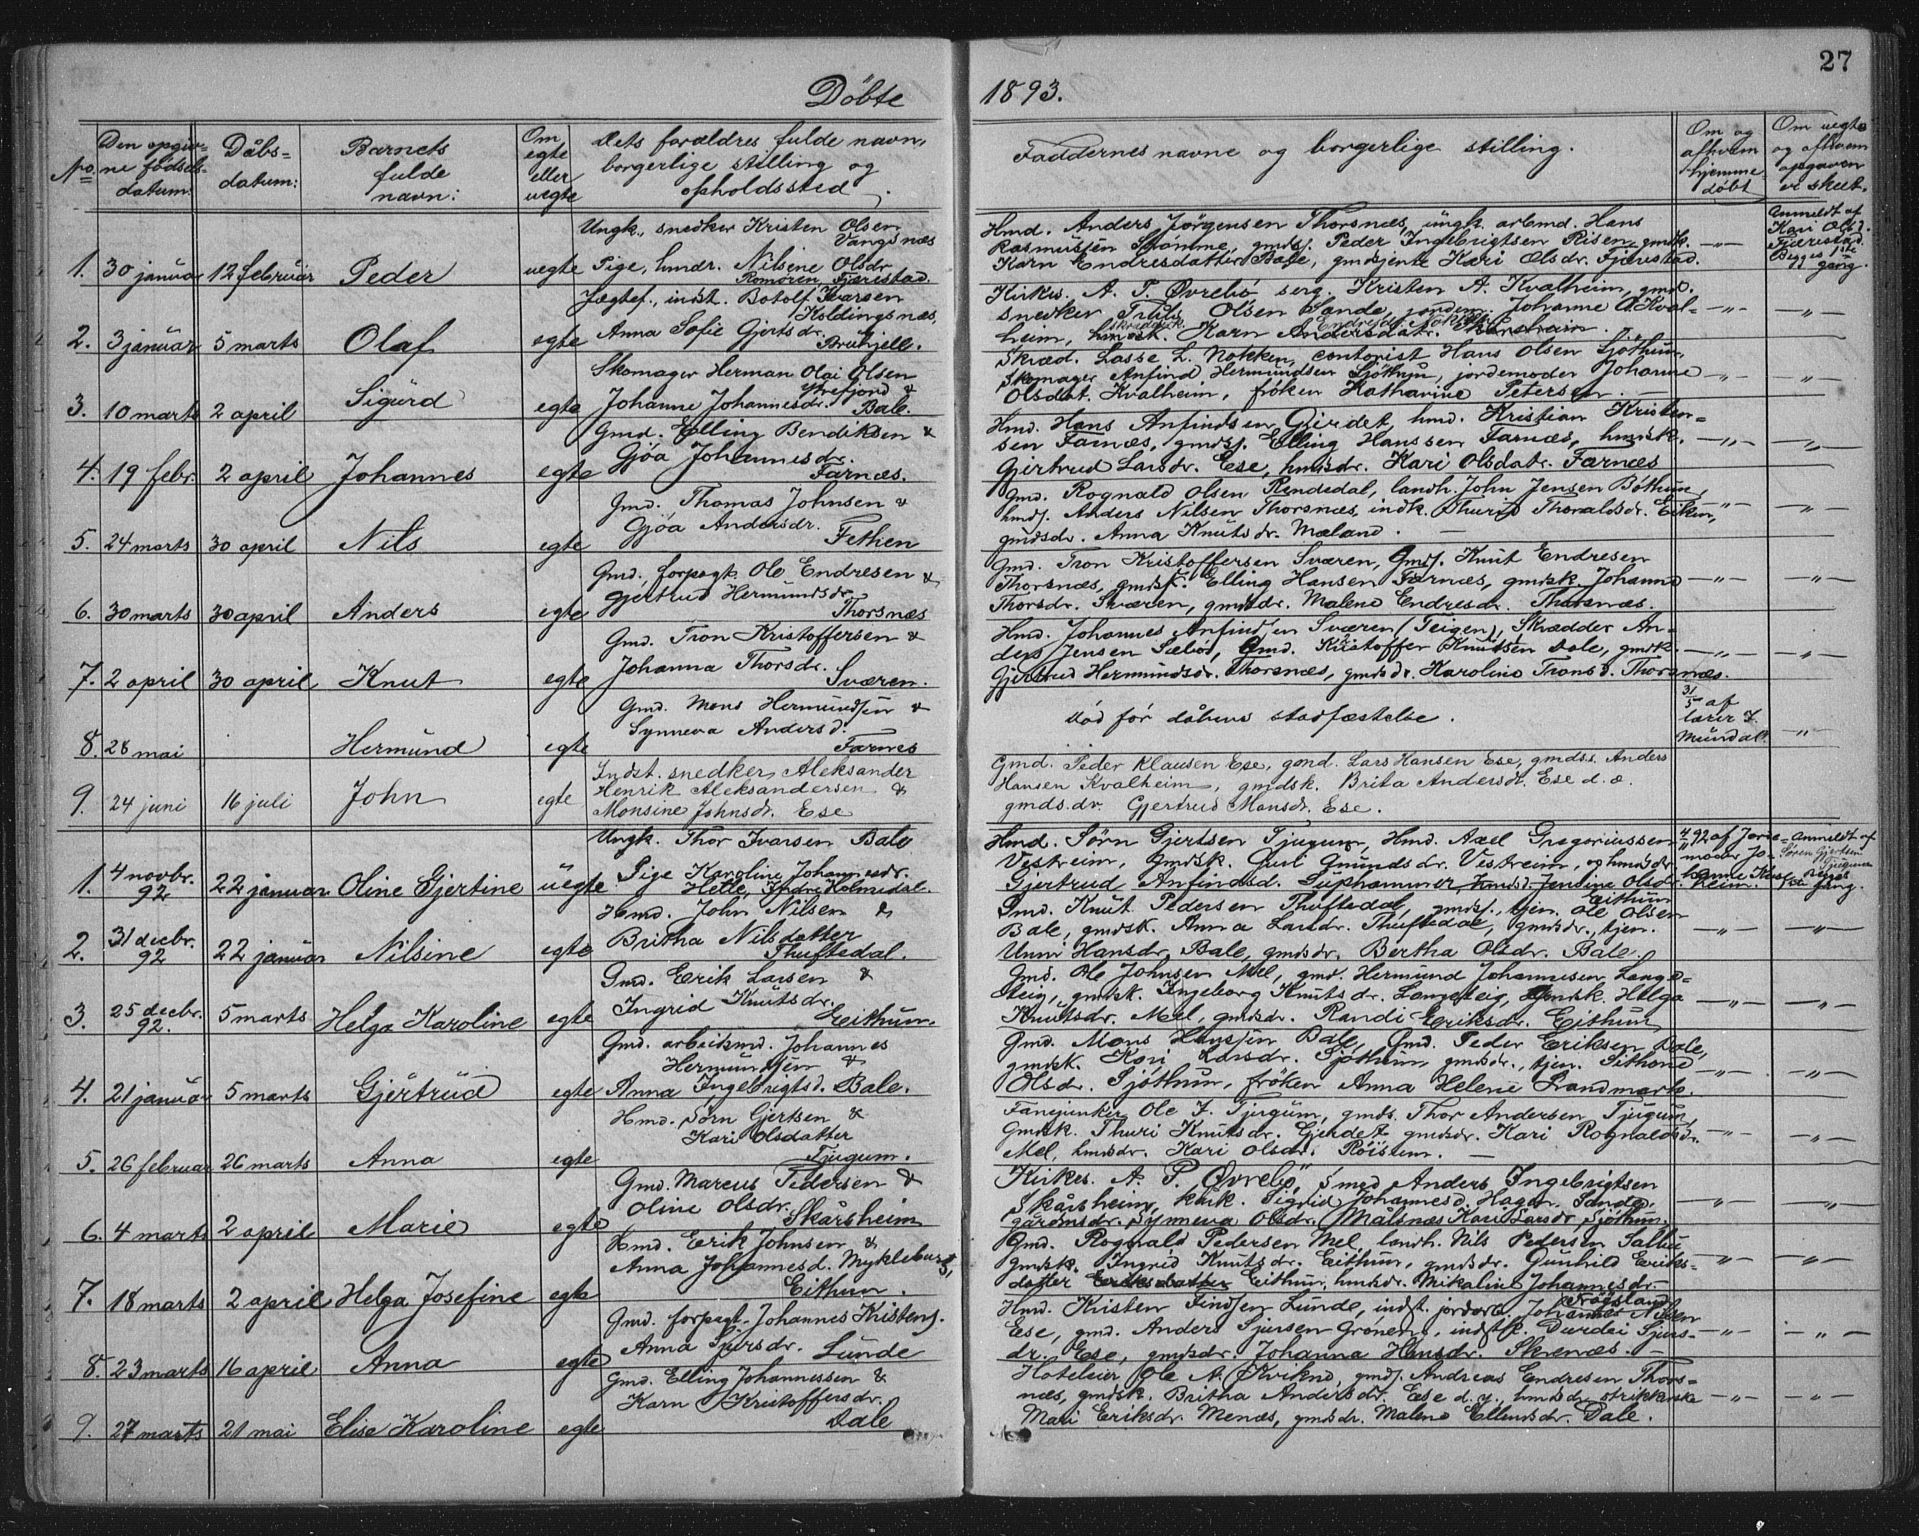 27
Döbte 1893.
No.
Den opgiv-
ne födsels-
datum.
Dåbs-
datum:
Barnets
fulde
navn:
Om
egte
eller
uegte
Dets forældres fulde navn,
borgerlige stilling og
opholdssted.
Faddernes navne og borgerlige stilling.
Om og
af hvem
hjemme
döbt
Om uegte
og af hvem
opgaven
er skeet.
1. 30 januar 12 februar Peder uegte
Ungk., snedker Kristen Olsen
Vangsnæs
Pige, hmdr. Nilsine Olsdr.
Romören, Fjærestad.
Hmd. Anders Jørgensen Thorsnæs, ungk. arbmd. Hans
Rasmussen Stömme, gmdsj. Peder Ingebrigtsen Risen, gmdk.
Karn Endresdatter Bale, gmdsjente Kari Olsdr. Fjærestad.
—"—
Anmeldt af
Kari Olsd.
Fjærestad.
Begges 1ste
gang.
2. 3 januar 5 marts Olaf egte
Jægtef., indst. Botolf Ivarsen
Holdingsnæs,
Anna Sofie Gjertsdr.
Bruhjell.
Kirkes. A. P. Øvrebö serg. Kristen A. Kvalheim, gmd.
snedker Truls Olsen Sande, jordem. Johanne O. Kval-
heim, hmdsk. Karn Andersdatr.
—"— —"—
3. 10 marts 2 april Sigurd egte
Skomager Herman Olai Olsen
Ytrefjord &
Johanne Johannesdr. Bale.
Skræd. Lasse L. Nokken, contorist Hans Olsen Sjöthun,
Skomager Anfind Hermundsen Sjöthun, jordemoder Johanne
Olsdat. Kvalheim, fröken Katharine Petersen.
—"— —"—
4. 19 febr. 2 april Johannes egte
Gmd. Elling Bendiksen &
Gjøa Johannesdr.
Farnæs.
Hmd. Hans Anfindsen Gjerdet, hmd. Kristian Kristen-
sen Farnæs, gmdsj. Elling Hanssen Farnæs, hmdsk.
Gjertrud Larsdr. Ese, hmdsdr. Kari Olsdatr. Farnæs
—"— —"—
5. 24 marts 30 april Nils egte
Gmd. Thomas Johnsen &
Gjøa Andersdr.
Fethien
Gmd. Rognald Olsen Rendedal, landh. John Jensen Böthun,
hmdsj. Anders Nilsen Thorsnæs, indk. Thurid Thoraldsdr. Eiken,
gmdsdr. Anna Knutsdr. Mæland.
—"— —"—
6. 30 marts 30 april Anders egte
Gmd., forpagt. Ole Endresen &
Gjertrud Hermundsdr.
Thorsnæs
Gmd. Tron Kristoffersen Sværen, Gmdsj. Knut Endresen
Thorsnæs, gmdsk. Elling Hansen Farnæs, gmdsk Johanna
Thorsdr. Sværen, gmdsdr. Malene Endresdr. Thorsnæs.
—"— —"—
7. 2 april 30 april Knut egte
Gmd. Tron Kristoffersen &
Johanna Thorsdr.
Sværen.
Hmd. Johannes Anfindsen Sværen (Teigen), Skrædder An-
ders Jensen Sæbö, Gmd. Kristoffer Knutsen Dale, gmdk.
Gjertrud Hermundsdr. Thorsnæs, gmdsdr. Karoline Transd. Thorsnæs.
—"— —"—
8. 28 mai Hermund egte
Gmd. Mons Hermundsen &
Synneva Andersd.
Farnes
död för dåbens stadfæstelse.
31/5 af
lærer J.
Mundal.
—"—
9. 24 juni 16 juli John egte
Indst. snedker, Aleksander
Henrik Aleksandersen &
Monsine Johnsdr. Ese
Gmd. Peder Klausen Ese, gmd. Lars Hansen Ese, gmds.s. Anders
Hansen Kvalheim, gmdsk. Brita Andersdt. Ese d. æ.
gmds.dr. Gjertrud Monsdr. Ese.
1. 4 novbr.
92 22 januar Oline Gjertine uegte
Ungk. Thor Ivarsen Bale
Pige Karoline Johannesdr.
Helle, Indre Holmedal.
Hmd. Sörn Gjertsen Tjugum, Hmd. Axel Gregoriussen
Vestreim, Gmdsk. Guri Gmundsdr. Vestreim, og hmdsdr.
Gjertrud Anfindsd. Suphammer hmdsd. Jensine Olsdr.
Eithun
4/11 92 af Jorde-
moder Jo-
hanne Kval-
heim.
Anmeldt af
Sören Gjertsen
Tjugum
begges
1ste gang.
2. 31 decbr.
92 22 januar Nilsine egte
Hmd. John Nilsen &
Britha Nilsdatter
Thuftedal.
Gmd. Knut Pedersen Thuftedal, gmdsj., tjen. Ole Olsen
Bale, gmdsk. Anna Larsdr. Thuftedal, gmdsdr., tjen.
Unni Hansdr. Bale, gmdsdr. Bertha Olsdr. Bale.
—"— —"—
3. 25 decbr.
92. 5 marts Helga Karoline egte
Gmd. Erik Larsen &
Ingrid Knutsdr.
Eithun.
Gmd. Ole Johnsen Mel, gmd. Hermund Johannesen Lange-
teig, gmdsk. Ingeborg Knutsdr. Langeteig, Gmdsk. Helga
Knutsdr. Mel, gmdsdr. Randi Eriksdr. Eithun
—"— —"—
4. 21 januar 5 marts Gjertrud egte
Gmd. arbeidsmd. Johannes
Hermundsen &
Anna Ingebrigtsd. Bale.
Gmd. Mons Larssen Bale, Gmd. Peder Eriksen Dale,
gmdsk. Kari Larsdr. Sjöthun, gmdsdr., tjen. Sithone
Olsdr. Sjöthun, fröken Anna Helene Brandmark.
—"— —"—
5. 26 februar 26 marts Anna egte
Hmd. Sörn Gjertsen &
Kari Olsdatter
Tjugum.
Fanejunker Ole J. Tjugum, gmds. Thor Andersen Tjugum,
Gmdsk. Thuri Knutsdr. Gjerdet gmdsdr. Kari Rognaldsd.
Mel, hmdsdr. Kari Olsdr. Röisten.
—"— —"—
6. 4 marts 2 april Marie egte
Gmd. Marcus Pedersen &
Oline Olsdr.
Skårsheim
Kirkes. A. P. Øvrebö, Smed Anders Ingebrigtsen
Skårsheim, kirk. Sigrid Johannesd. Hagen Sande,
gårdmsdr. Synneva Olsdr. Målsnæs Kari Larsdr Sjöthun.
—"— —"—
7. 18 marts 2 april Helga Josefine egte
Hmd. Erik Johnsen &
Anna Johannesd. Myklebust,
Eithun.
Gmd. Rognald Pedersen Mel, landh. Nils Pedersen Salbu
Gmdsk. Ingrid Knutsdr. Eithun, gmdsdr. Gunhild Eriks-
datter Eriksdatter Eithun, hmdsdr. Mikaline Johannesdr.
—"— —"—
8. 23 marts 16 april Anna egte
Gmd. forpagt. Johannes Kristensj.
Anna Sjursdr. Lunde
Hmd. Kristen Findsen Lunde, indst. jordarb. Johannes Nilsen
Ese, gmd. Anders Sjursen Grönerg, indstp. Durdei Sjurs-
dr. Ese, gmdsdr. Johanna Hansdr. Skrenæs.
—"— —"—
9. 27 marts 21 mai Elise Karoline egte
Gmd. Elling Johannessen &
Karn Kristoffersdr.
Dale
Hoteleier Ole A. Kvikne, gmdsj. Andreas Endresen Thors-
næs, gmdsk. Britha Andersdt. Ese d. y., hmdsdr. strikkerske
Mari Eriksdr. Menæs, gmdsdr. Malene Ellendsdr. Dale.
—"— —"—